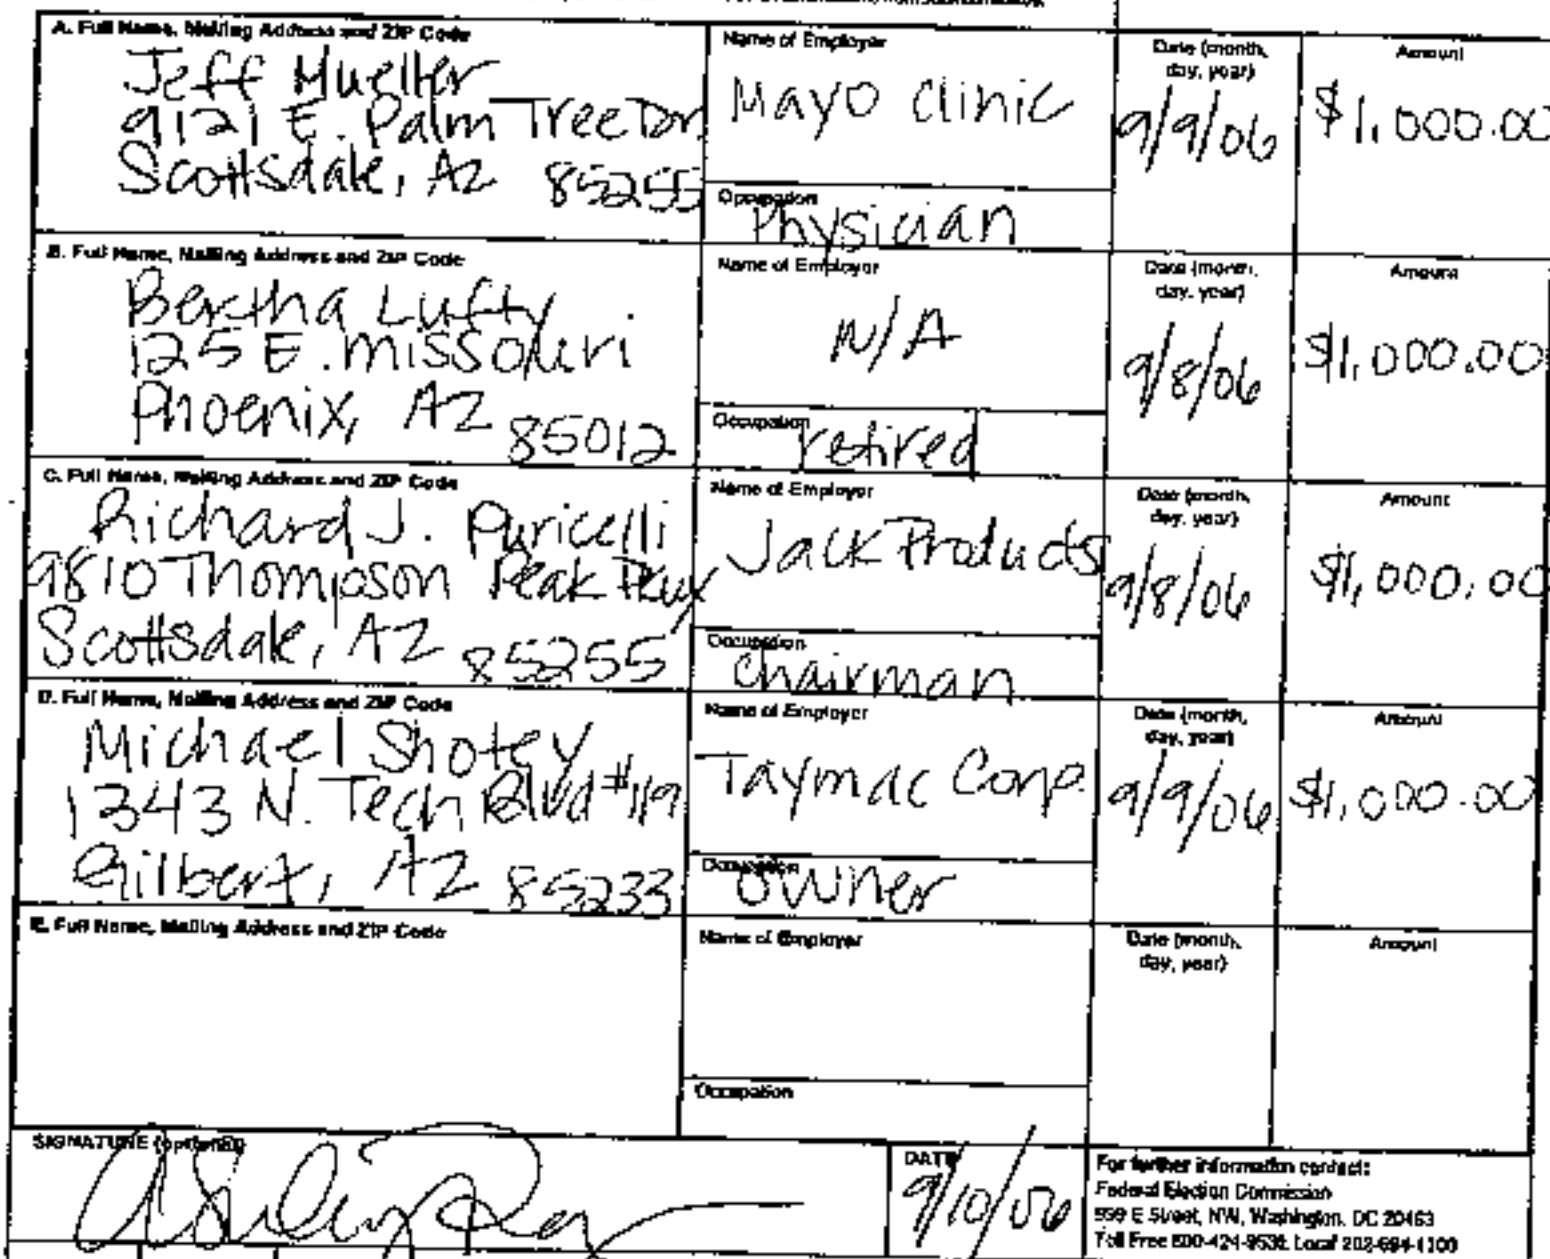 A. Full Name, Mailing Address and ZIP Code
Jeff Mueller
9121 E. Palm Tree Dr
Scottsdale, AZ 85255
Name of Employer
Mayo Clinic
Occupation
Physician
Date (month, day, year)
9/9/06
Amount
$1,000.00
B. Full Name, Mailing Address and ZIP Code
Bertha Lufty
125 E. Missouri
Phoenix, AZ 85012
Name of Employer
N/A
Occupation
retired
Date (month, day, year)
9/8/06
Amount
$1,000.00
C. Full Name, Mailing Address and ZIP Code
Richard J. Puricelli
9810 Thompson Peak Pkwy
Scottsdale, AZ 85255
Name of Employer
Jack Products
Occupation
Chairman
Date (month, day, year)
9/8/06
Amount
$1,000.00
D. Full Name, Mailing Address and ZIP Code
Michael Shotey
1343 N. Tech Blvd #119
Gilbert, AZ 85233
Name of Employer
Taymac Corp.
Occupation
owner
Date (month, day, year)
9/9/06
Amount
$1,000.00
E. Full Name, Mailing Address and ZIP Code
Name of Employer
Occupation
Date (month, day, year)
Amount
SIGNATURE (optional)
DATE
9/10/06
For further information contact:
Federal Election Commission
999 E Street, NW, Washington, DC 20463
Toll Free 800-424-9530, Local 202-694-1100